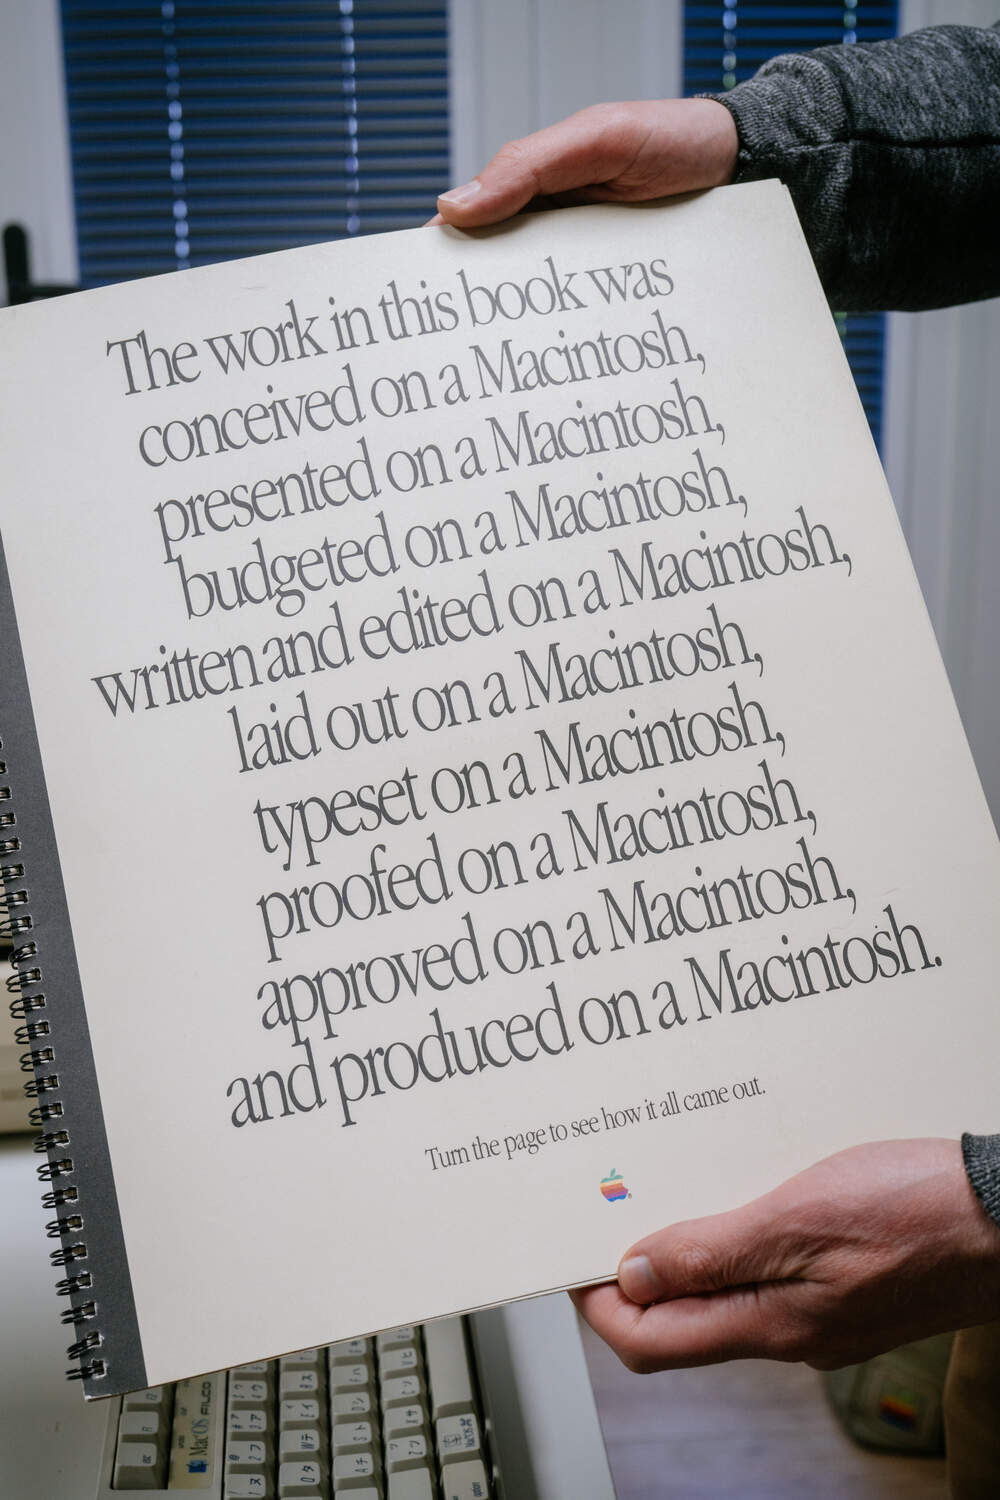 The work in this book was
conceived on a Macintosh,
presented on a Macintosh,
budgeted on a Macintosh,
written and edited on a Macintosh,
laid out on a Macintosh,
typeset on a Macintosh,
proofed on a Macintosh,
approved on a Macintosh,
and produced on a Macintosh.
Turn the page to see how it all came out.
®
MacOS FILCO
esc
option
MacOS